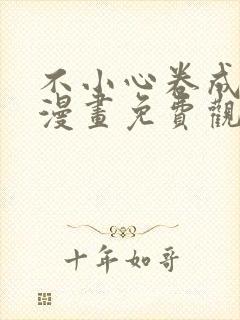 不小心卷成
漫畫免費觀
十年如哥